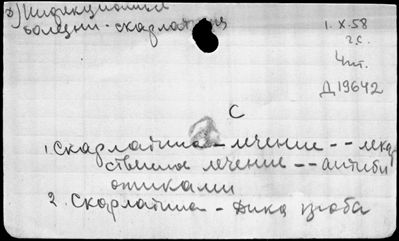 3) Инфекционные
болезни - скарлатина
1.X.58
2 с.
Чит.
Д19642
С
1. Скарлатина - лечение -- лека
ственное лечение -- антиби
отиками
2. Скарлатина - Дика проба